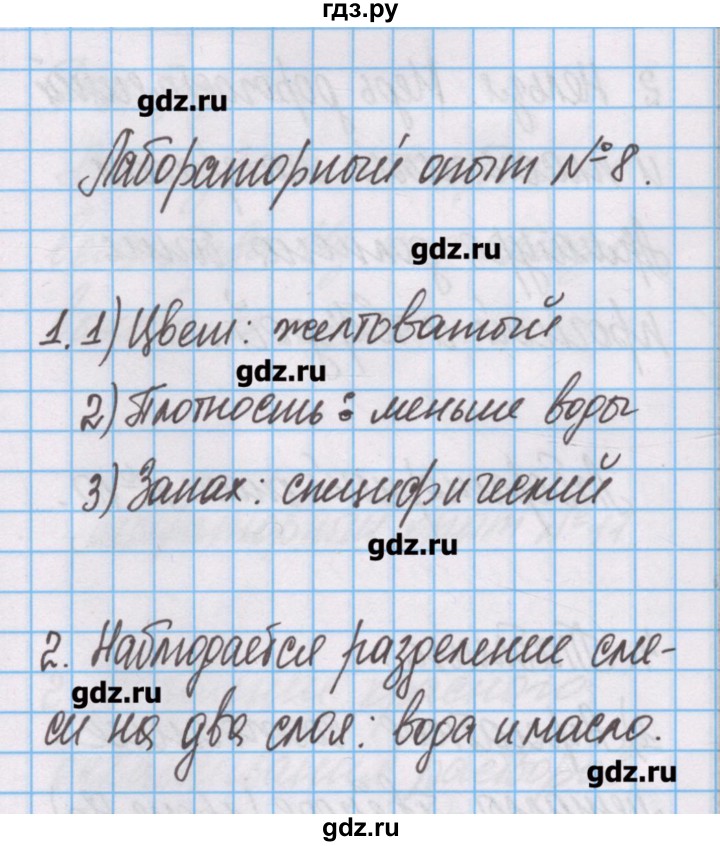 гдз.ру
gdz.ru
Лабораторный опыт №8.
gdz.ru
1. 1) Цвет: желтоватый
gdz.ru
2) Плотность: меньше воды
3) Запах: специфический
gdz.ru
2. Наблюдается разделение сме-
gdz.ru
си на два слоя: вода и масло.
gdz.ru
gdz.ru